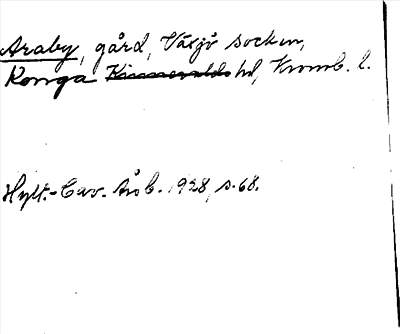 Araby, gård, Växjö socken,
Konga Kinnevalds hd, Kronob. l.
Hylt.-Cav. årsb. 1928, s. 68.